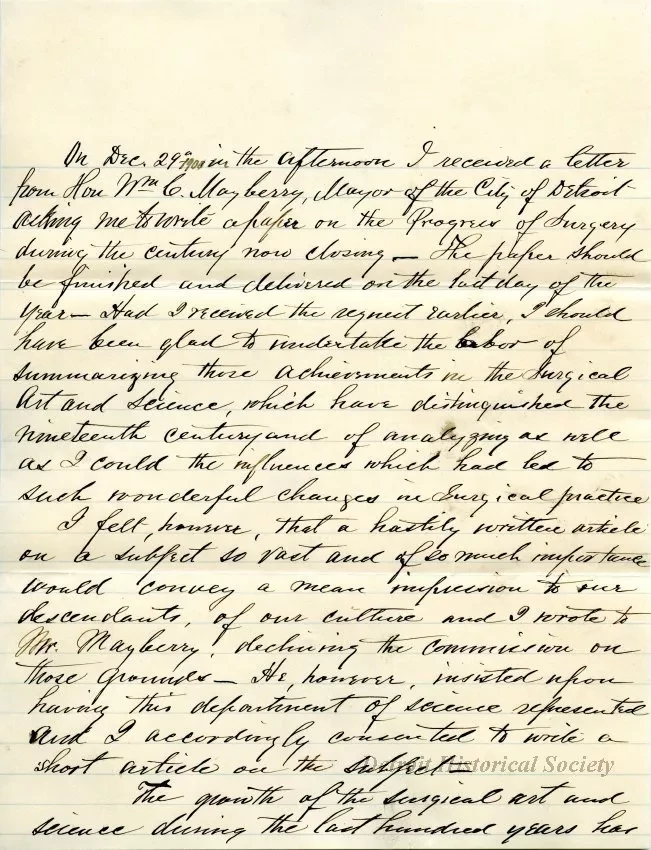 On Dec. 29th 1900 in the afternoon I received a letter
from Hon Wm C. Mayberry, Mayor of the City of Detroit
asking me to write a paper on the Progress of Surgery
during the century now closing — The paper should
be finished and delivered on the last day of the
year — Had I received the request earlier, I should
have been glad to undertake the labor of
summarizing those achievements in the Surgical
Art and Science, which have distinguished the
nineteenth century and of analyzing as well
as I could the influences which had led to
such wonderful changes in Surgical practice
I felt, however, that a hastily written article
on a subject so vast and of so much importance
would convey a mean impression to our
descendants, of our culture and I wrote to
Mr. Mayberry, declining the commission on
those grounds — He, however, insisted upon
having this department of science represented
and I accordingly consented to write a
short article on the subject —
Detroit Historical Society
The growth of the surgical art and
science during the last hundred years has